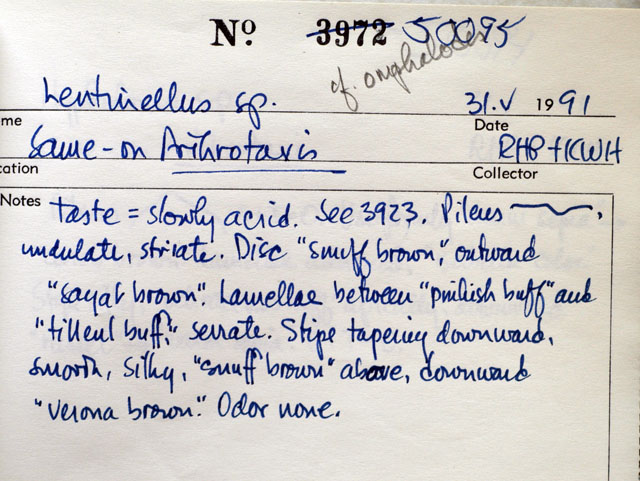 Nº 3972 50095
cf. omphalodes
Lentinellus sp. 31.V 1991
me Date
Same - on Arthrotaxis RHP + KWH
cation Collector
Notes taste = slowly acrid. See 3923. Pileus
undulate, striate. Disc "snuff brown," outward
"sayal brown". Lamellae between "pinkish buff" and
"tilleul buff." serrate. Stipe tapering downward,
smooth, silky, "snuff brown" above, downward
"verona brown." Odor none.